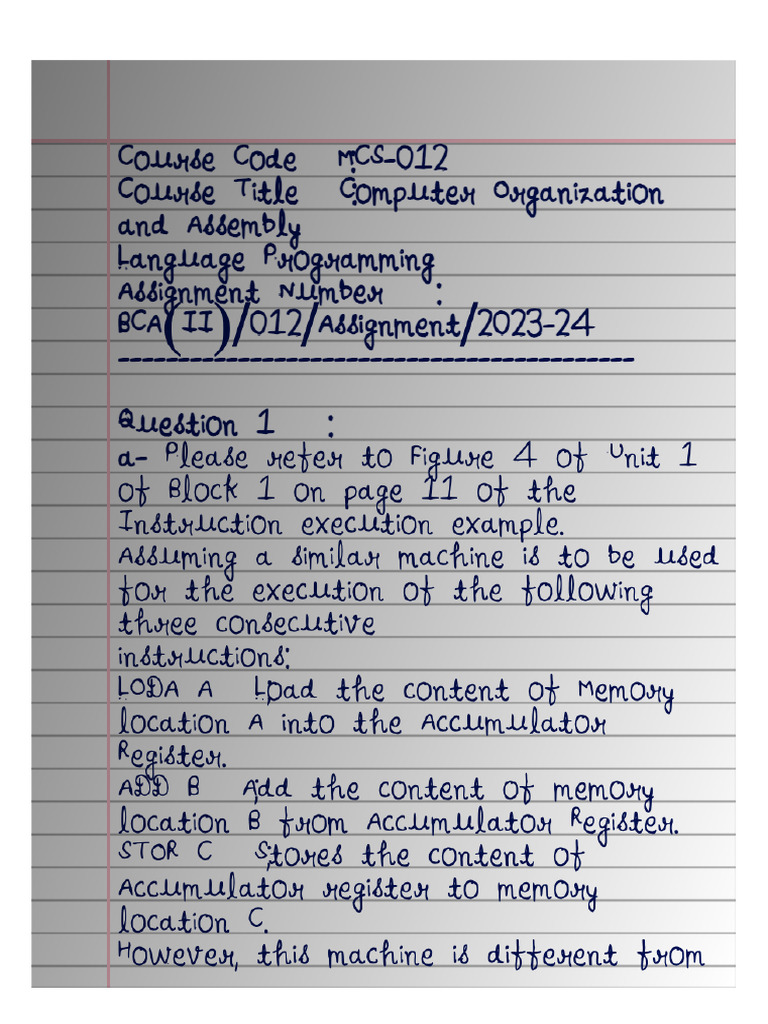 Course Code : MCS-012
Course Title : Computer Organization
and Assembly
Language Programming
Assignment Number :
BCA(II)/012/Assignment/2023-24
-------------------------------------------
Question 1 :
a- Please refer to Figure 4 of Unit 1
of Block 1 on page 11 of the
Instruction execution example.
Assuming a similar machine is to be used
for the execution of the following
three consecutive
instructions:
LODA A ; Load the content of Memory
location A into the Accumulator
Register.
ADD B ; Add the content of memory
location B from Accumulator Register.
STOR C ; Stores the content of
Accumulator register to memory
location C.
However, this machine is different from